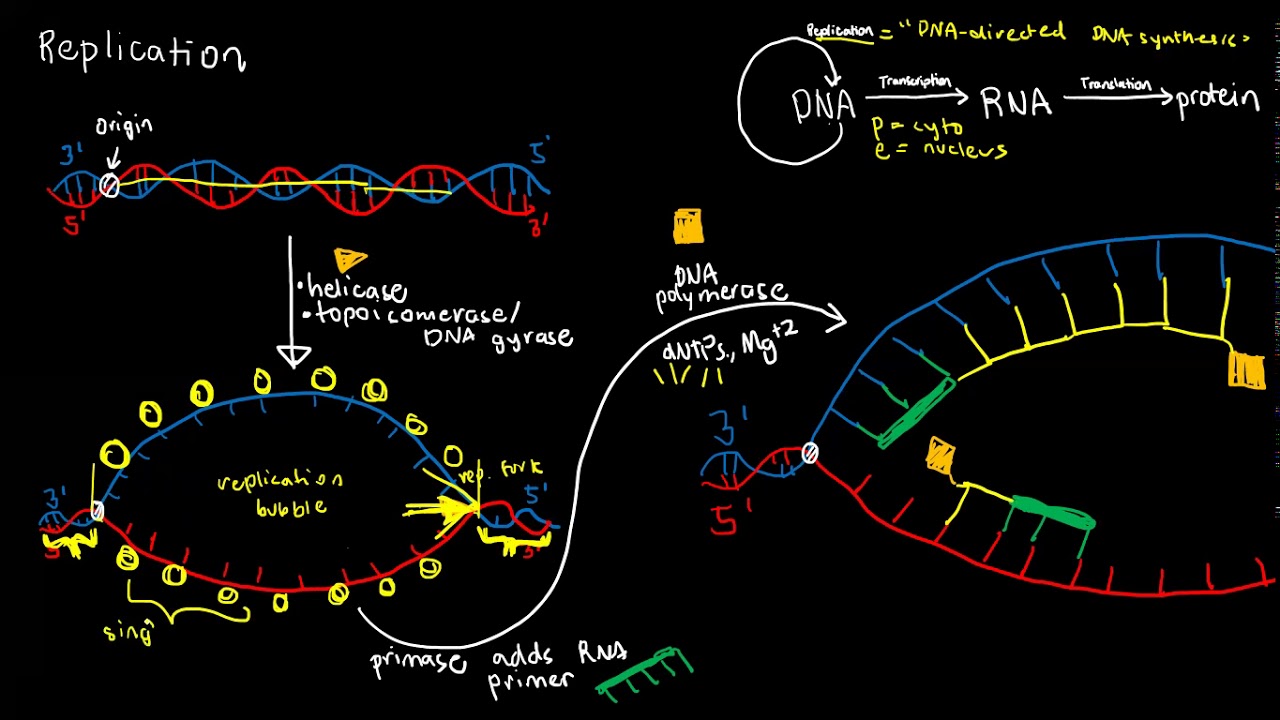 Replication
Replication = "DNA-directed DNA synthesis"
DNA Transcription RNA Translation protein
p = cyto
e = nucleus
origin
3' 5'
5' 3'
• helicase
• topoisomerase/
DNA gyrase
DNA
polymerase
dNTPs, Mg+2
replication
bubble
rep. fork
3' 5'
5' 3'
sing
primase adds RNA
primer
3'
5'